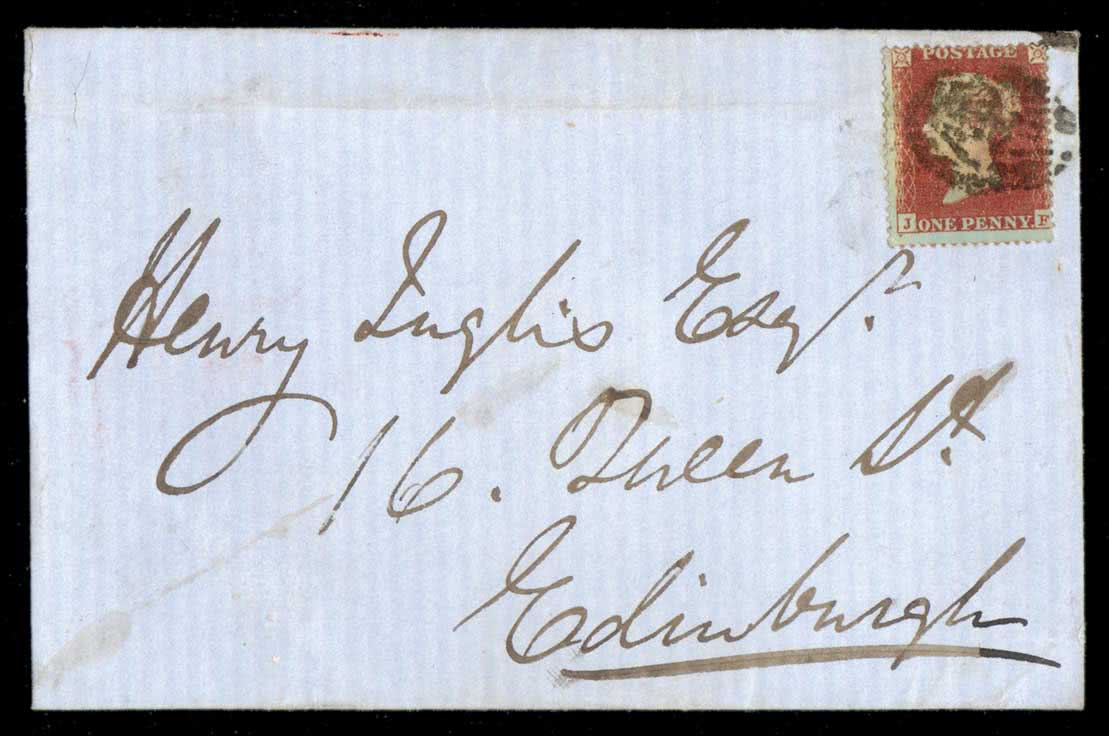 POSTAGE
J ONE PENNY. F
Henry Inglis Esqr.
16. Queen St.
Edinburgh